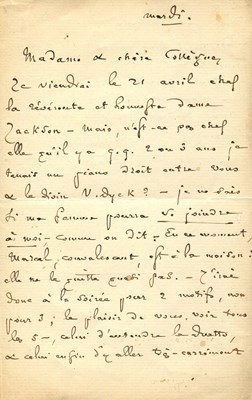 mardi.
Madame & chère Collègue,
Je viendrai le 21 avril chez
la révérente et honneste dame
Jackson - Mais, n'est-ce pas chez
elle qu'il y a q.q. 2 ou 3 ans je
tenais un piano droit entre vous
& le divin V. dyck? - je ne sais
si ma femme pourra se joindre
à moi, comme on dit. En ce moment
Marcel, convalescent est à la maison:
elle ne le quitte quasi pas. - J'irai
donc à la soirée pour 2 motifs, non
pour 3; le plaisir de vous voir tous
les 5 -, celui d'entendre le Duetto,
& celui enfin d'y aller très-carrément